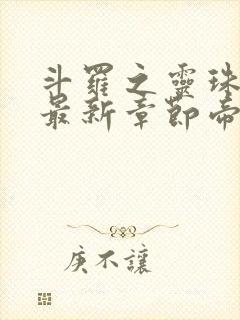 斗羅之靈珠
最新章節帝
庚不讓